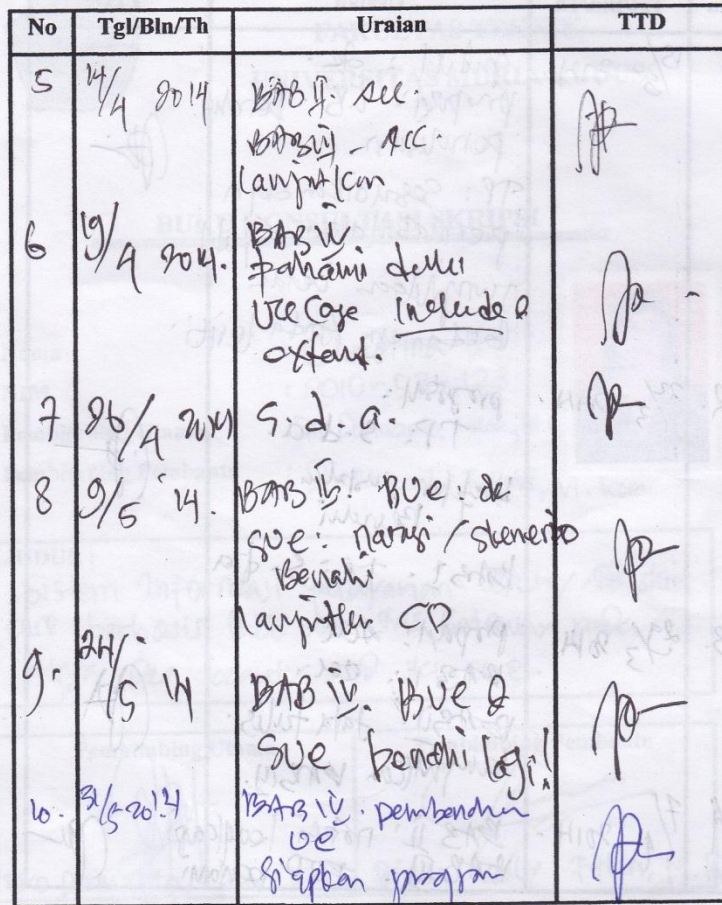 No Tgl/Bln/Th Uraian TTD
5 14/4 2014 BAB II. Acc.
BAB III - ACC
lanjutkan
6 19/4 2014. BAB IV
Pahami dulu
Use Case include &
extend.
7 26/4 2014 S. d. a.
8 9/5 14. BAB IV. BUC. de
SUC: narasi / skenario
Benahi
lanjutkan CD
9. 24/5 14 BAB IV. BUC &
SUC benahi lagi!
10. 31/5-2014 BAB IV. pembenahan
UC
Siapkan program